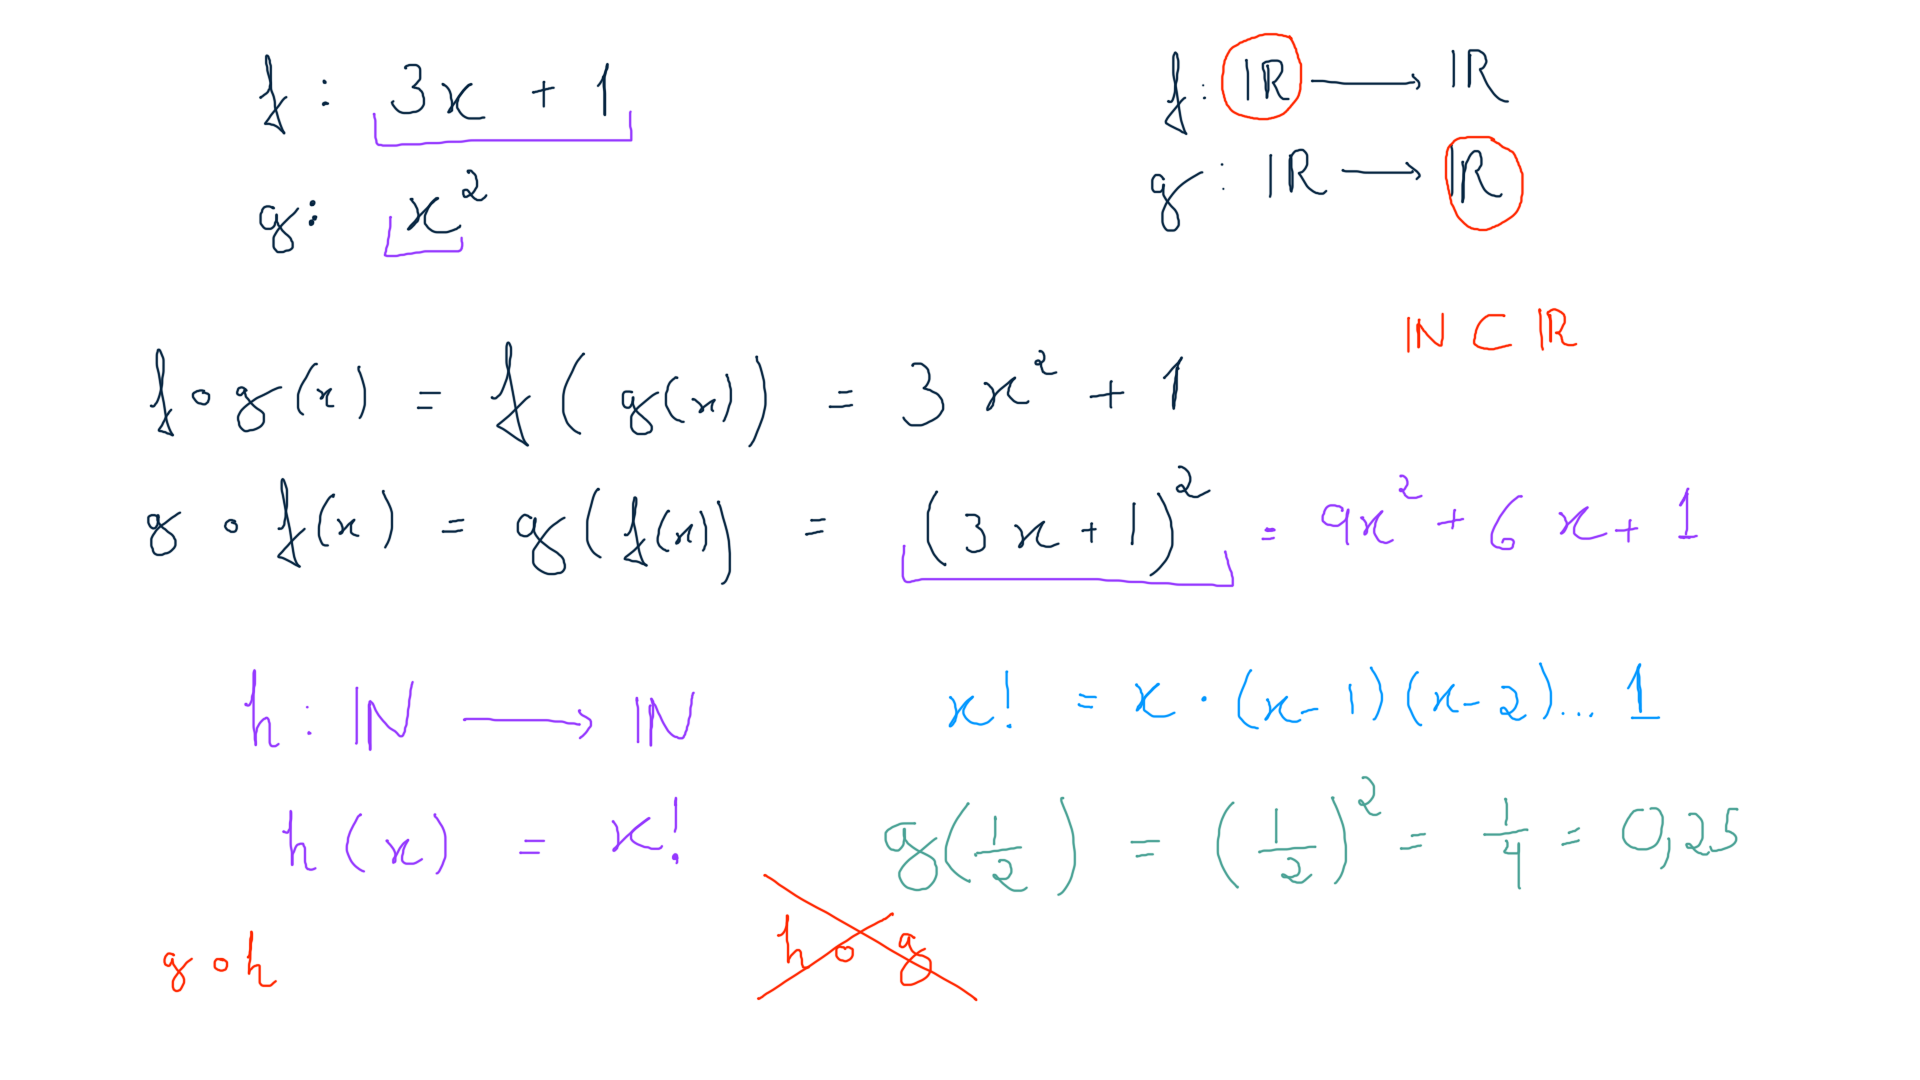 f : 3x + 1
f : ℝ ⟶ ℝ
g : x²
g : ℝ ⟶ ℝ
ℕ ⊂ ℝ
f ∘ g(x) = f(g(x)) = 3x² + 1
g ∘ f(x) = g(f(x)) = (3x + 1)² = 9x² + 6x + 1
h : ℕ ⟶ ℕ
x! = x · (x-1)(x-2)... 1
h(x) = x!
g(1/2) = (1/2)² = 1/4 = 0,25
g ∘ h
h ∘ g